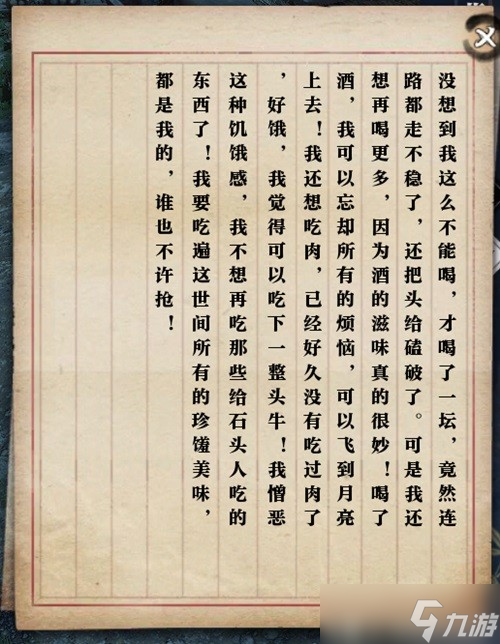 没想到我这么不能喝，才喝了一坛，竟然连
路都走不稳了，还把头给磕破了。可是我还
想再喝更多，因为酒的滋味真的很妙！喝了
酒，我可以忘却所有的烦恼，可以飞到月亮
上去！我还想吃肉，已经好久没有吃过肉了
，好饿，我觉得可以吃下一整头牛！我憎恶
这种饥饿感，我不想再吃那些给石头人吃的
东西了！我要吃遍这世间所有的珍馐美味，
都是我的，谁也不许抢！
九游